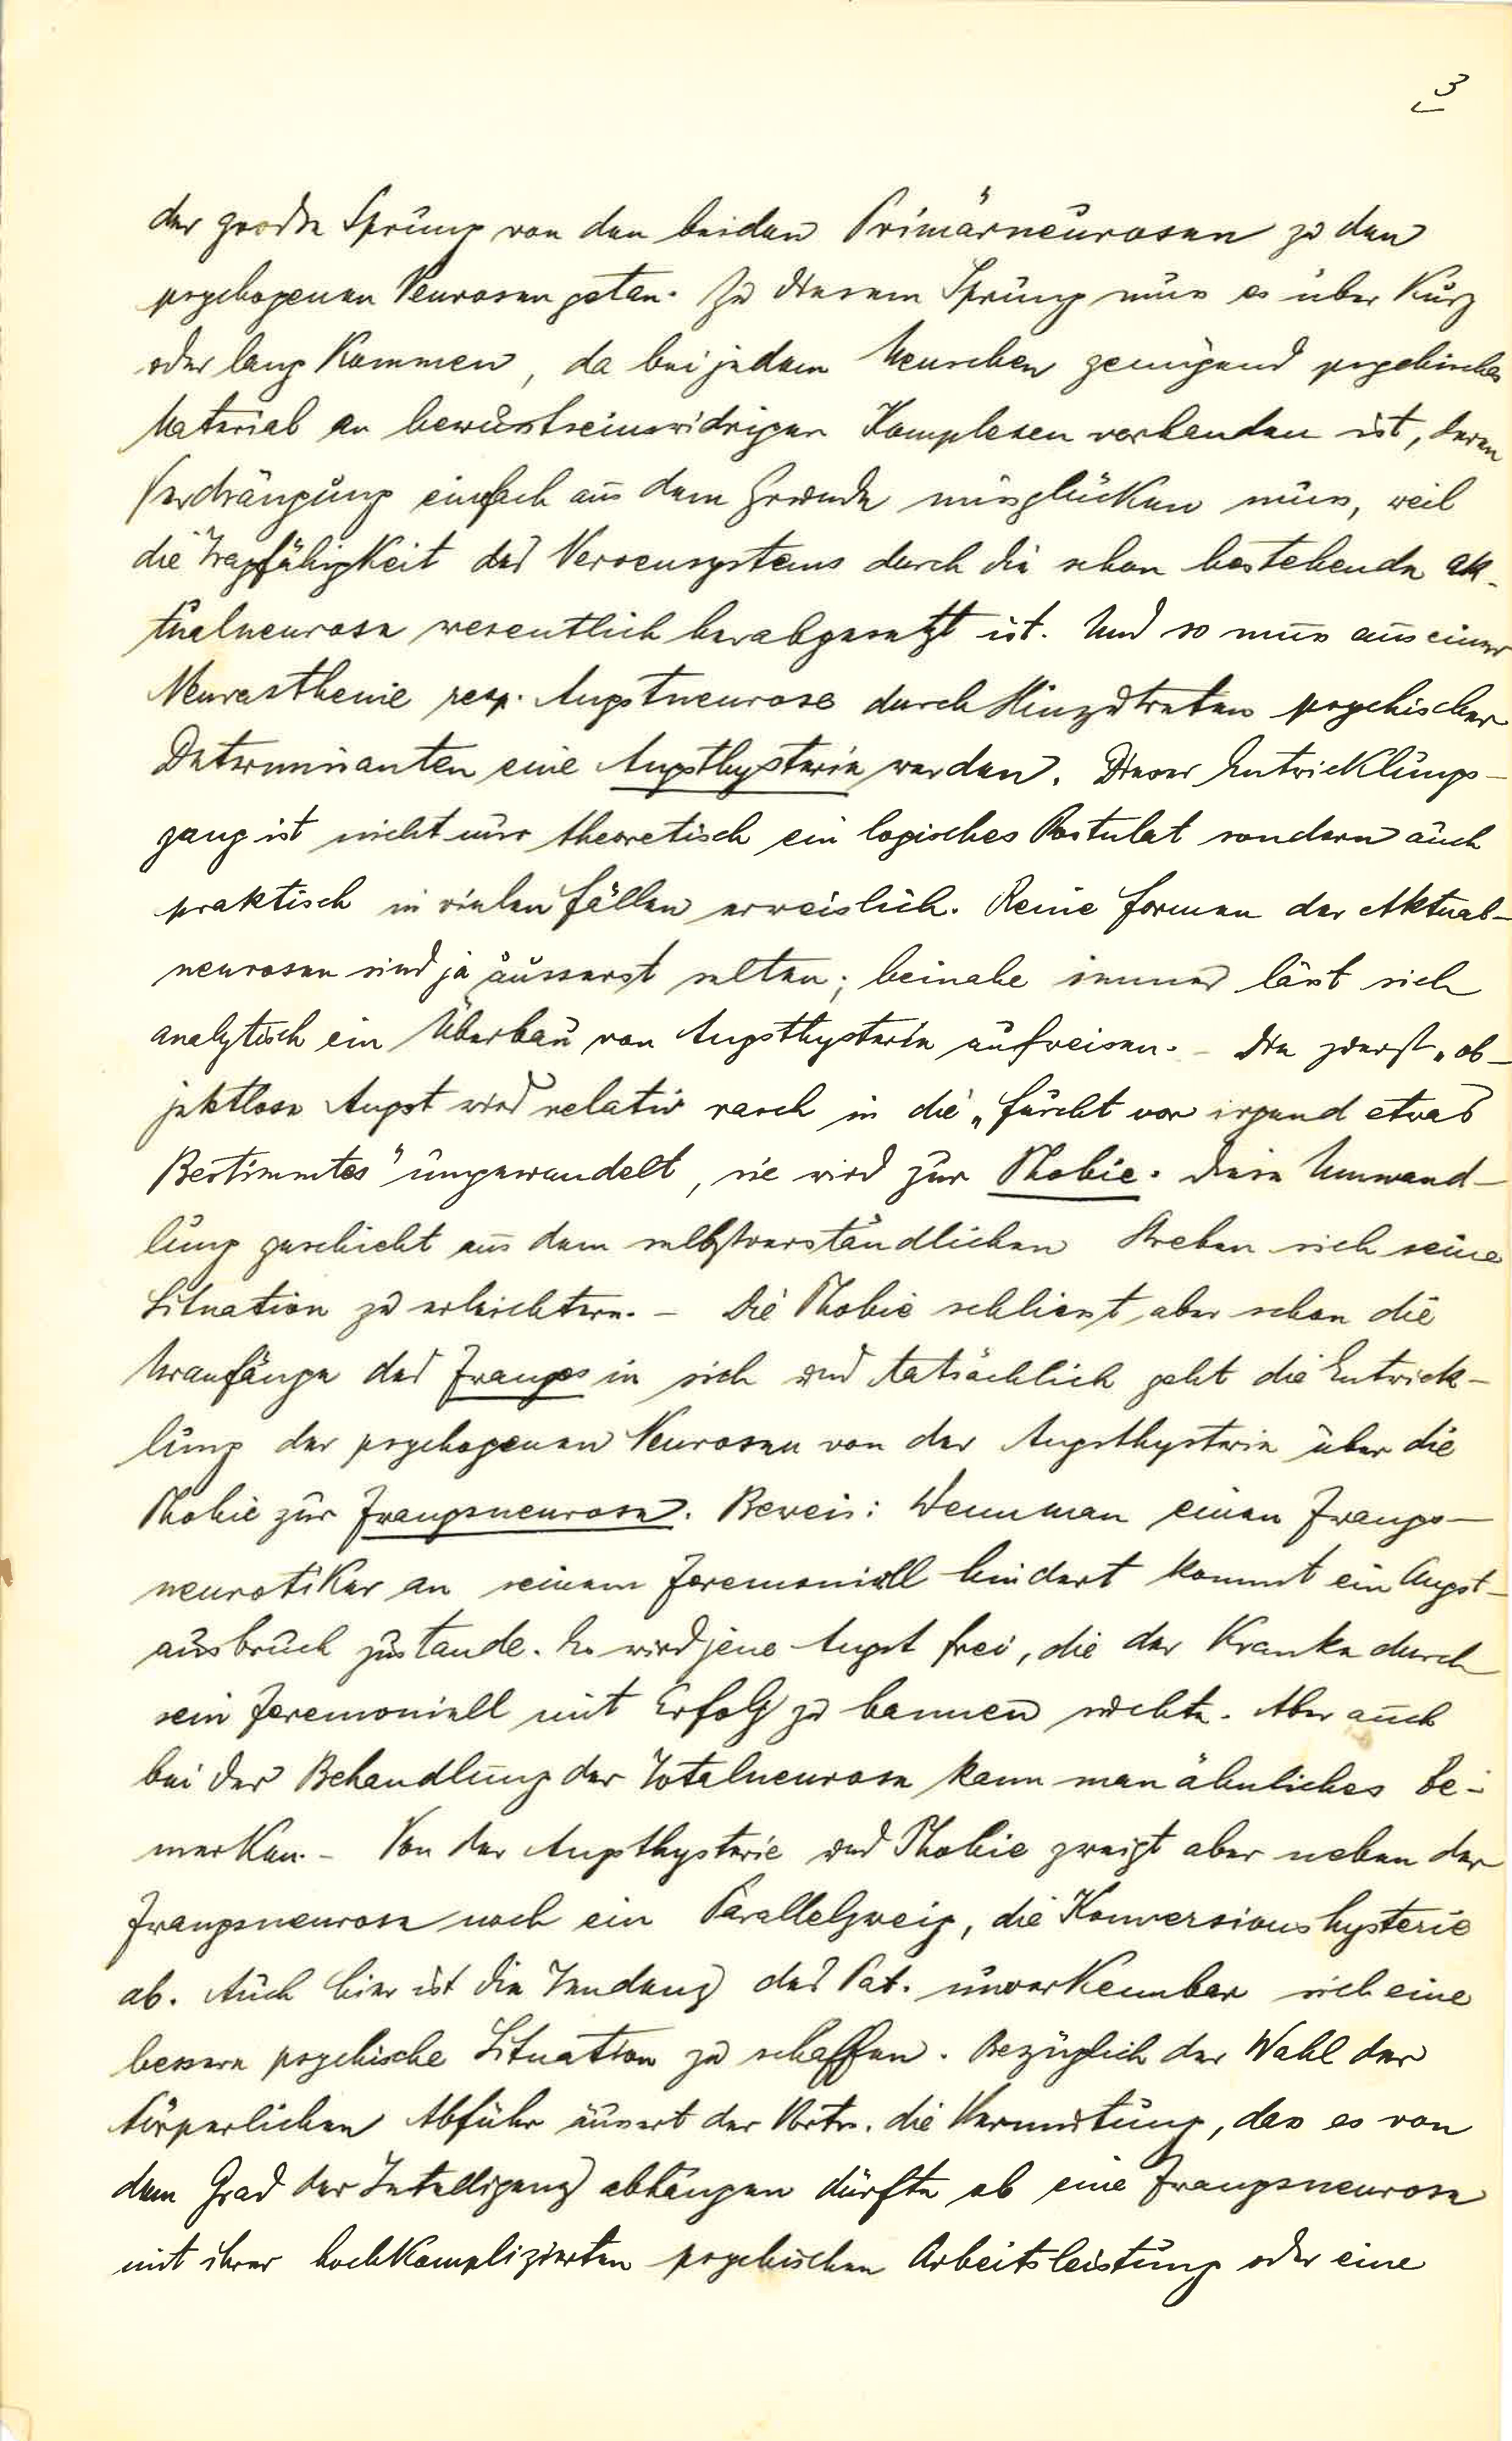 3
der große Sprung von den beiden Primärneurosen zu den
psychogenen Neurosen getan. Zu diesem Sprung muss es über kurz
oder lang kommen, da bei jedem Menschen genügend psychisches
Material an bewusstseinswidrigen Komplexen vorhanden ist, deren
Verdrängung einfach aus dem Grunde missglücken muss, weil
die Tragfähigkeit des Nervensystems durch die schon bestehende Ak-
tualneurose wesentlich herabgesetzt ist. Und so muss aus einer
Neurasthenie resp. Angstneurose durch Hinzutreten psychischer
Determinanten eine Angsthysterie werden. Dieser Entwicklungs-
gang ist nicht nur theoretisch ein logisches Postulat sondern auch
praktisch in vielen Fällen erweislich. Reine Formen der Aktual-
neurosen sind ja äusserst selten; beinahe immer lässt sich
analytisch ein Überbau von Angsthysterie aufweisen. – Die zuerst „ob-
jektlose Angst wird relativ rasch in die „Furcht vor irgend etwas
Bestimmtes" umgewandelt, sie wird zur Phobie. Diese Umwand-
lung geschieht aus dem selbstverständlichen Streben sich seine
Situation zu erleichtern. – Die Phobie schliesst aber schon die
Uranfänge des Zwanges in sich und tatsächlich geht die Entwick-
lung der psychogenen Neurosen von der Angsthysterie über die
Phobie zur Zwangsneurose. Beweis: Wenn man einen Zwangs-
neurotiker an seinem Zeremoniell hindert kommt ein Angst-
ausbruch zustande. Es wird jene Angst frei, die der Kranke durch
sein Zeremoniell mit Erfolg zu bannen suchte. Aber auch
bei der Behandlung der Totalneurose kann man ähnliches be-
merken. – Von der Angsthysterie und Phobie zweigt aber neben der
Zwangsneurose noch ein Parallelzweig, die Konversionshysterie
ab. Auch hier ist die Tendenz des Pat. unverkennbar sich eine
bessere psychische Situation zu schaffen. Bezüglich der Wahl der
körperlichen Abfuhr äussert der Vortr. die Vermutung, dass es von
dem Grad der Intelligenz abhängen dürfte ob eine Zwangsneurose
mit ihrer hochkomplizierten psychischen Arbeitsleistung oder eine